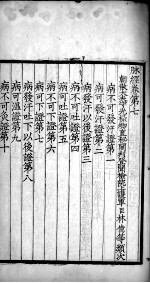 脉經卷第七
朝散大夫守光祿直祕閣判登聞檢院上護軍臣林億等類次
病不可發汗證第一
病可發汗證第二
病發汗以後證第三
病不可吐證第四
病可吐證第五
病不可下證第六
病可下證第七
病發汗吐下以後證第八
病可溫證第九
病不可灸證第十